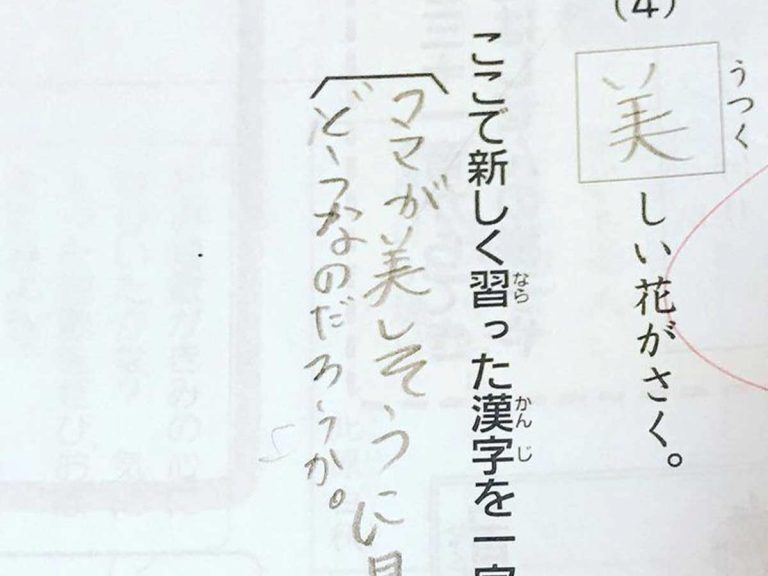 (4)
うつく
美しい花がさく。
ここで新しく習った漢字を一字
なら
かんじ
ママが美しそうに見
どうなのだろうか。